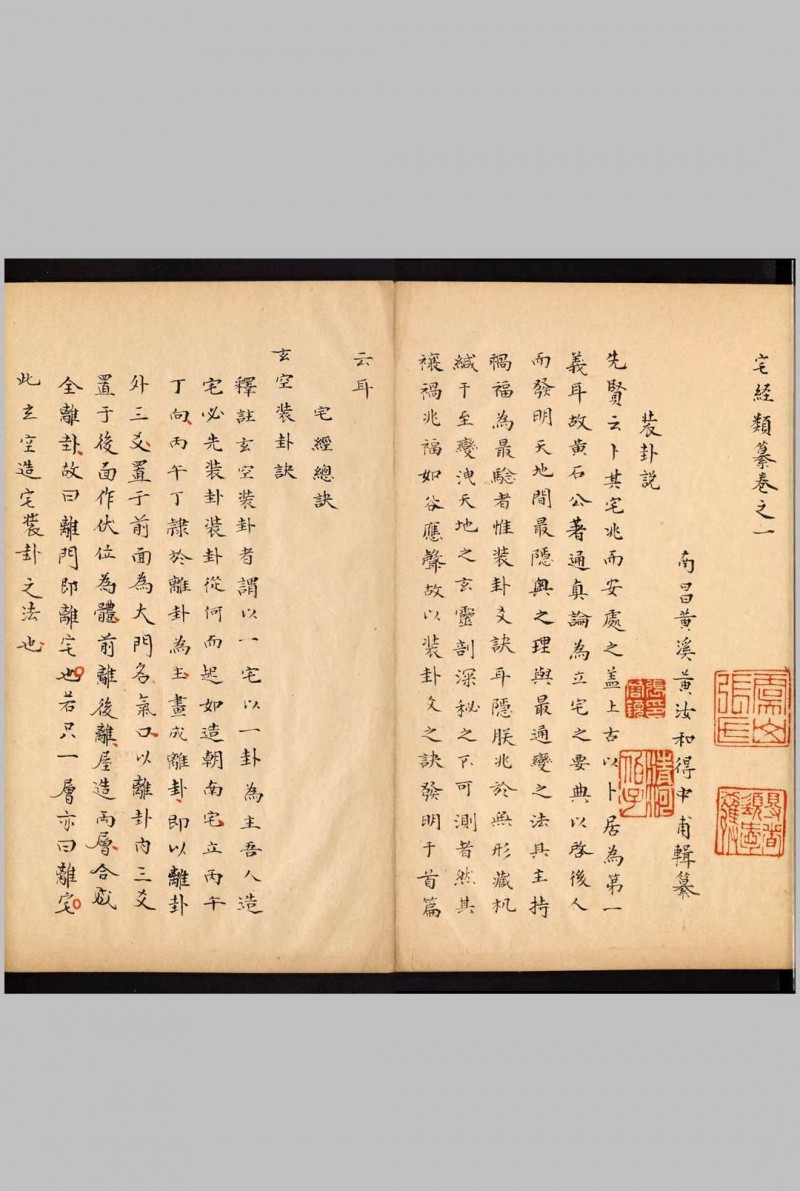 宅經類纂卷之一
南昌黃溪黃汝和得中甫輯纂
裝卦說
先賢云卜其宅兆而安處之蓋上古以卜居為第一
義耳故黃石公著通真論為立宅之要典以啓後人
而發明天地間最隱與之理與最通變之法其主持
禍福為最驗者惟裝卦爻訣耳隱朕兆於無形藏机
緘于至變洩天地之玄靈剖深秘之不可測者然其
禳禍兆福如谷應聲故以裝卦爻之訣發明于首篇
云耳
宅經總訣
玄空裝卦訣
釋註玄空裝卦者謂以一宅以一卦為主吾人造
宅必先裝卦裝卦從何而起如造朝南宅立丙午
丁向丙午丁隸於離卦為主畫成離卦即以離卦
外三爻置于前面為大門名氣口以離卦內三爻
置于後面作伏位為體前離後離屋造兩層合成
全離卦故曰離門即離宅也若只一層亦曰離宅
此玄空造宅裝卦之法也